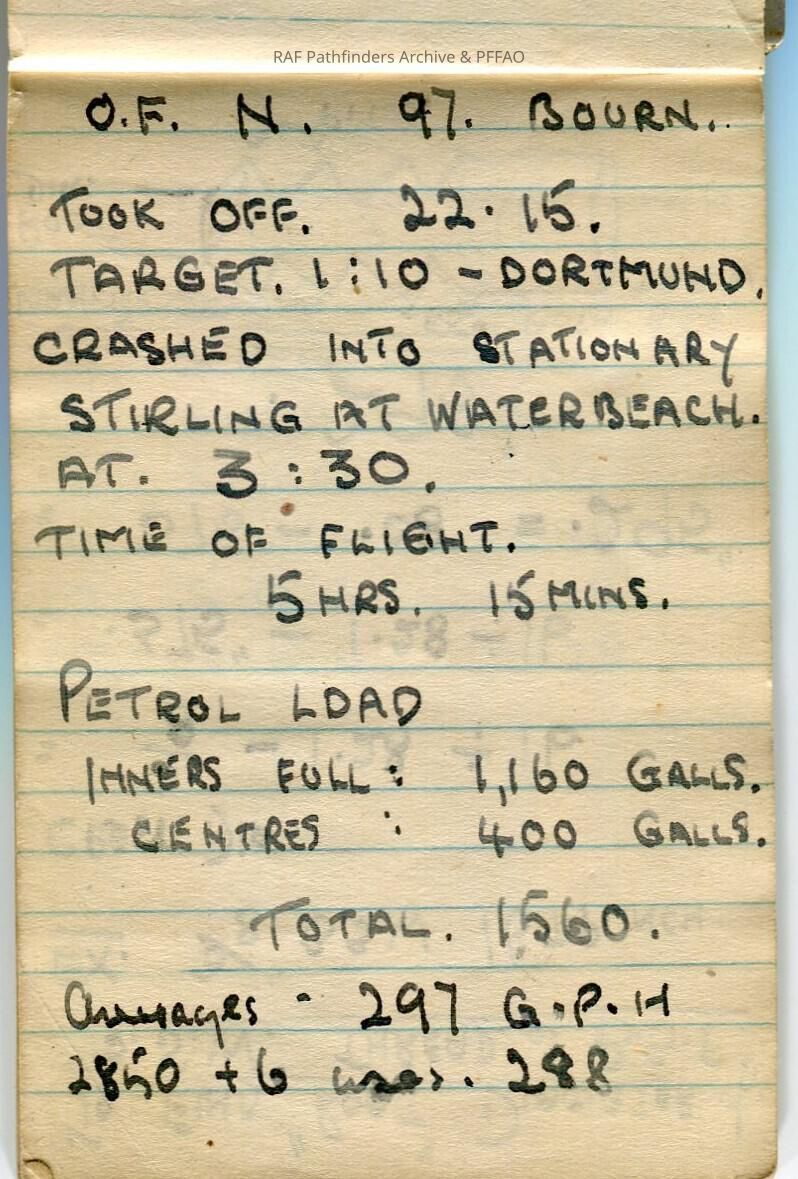 RAF Pathfinders Archive & PFFAO
O.F. N. 97. BOURN.
TOOK OFF. 22.15.
TARGET. 1:10 - DORTMUND.
CRASHED INTO STATIONARY
STIRLING AT WATERBEACH.
AT. 3:30.
TIME OF FLIGHT.
5 HRS. 15 MINS.
PETROL LOAD
INNERS FULL: 1,160 GALLS.
CENTRES : 400 GALLS.
TOTAL. 1560.
Averages - 297 G.P.H
2850 + 6 uses. 288